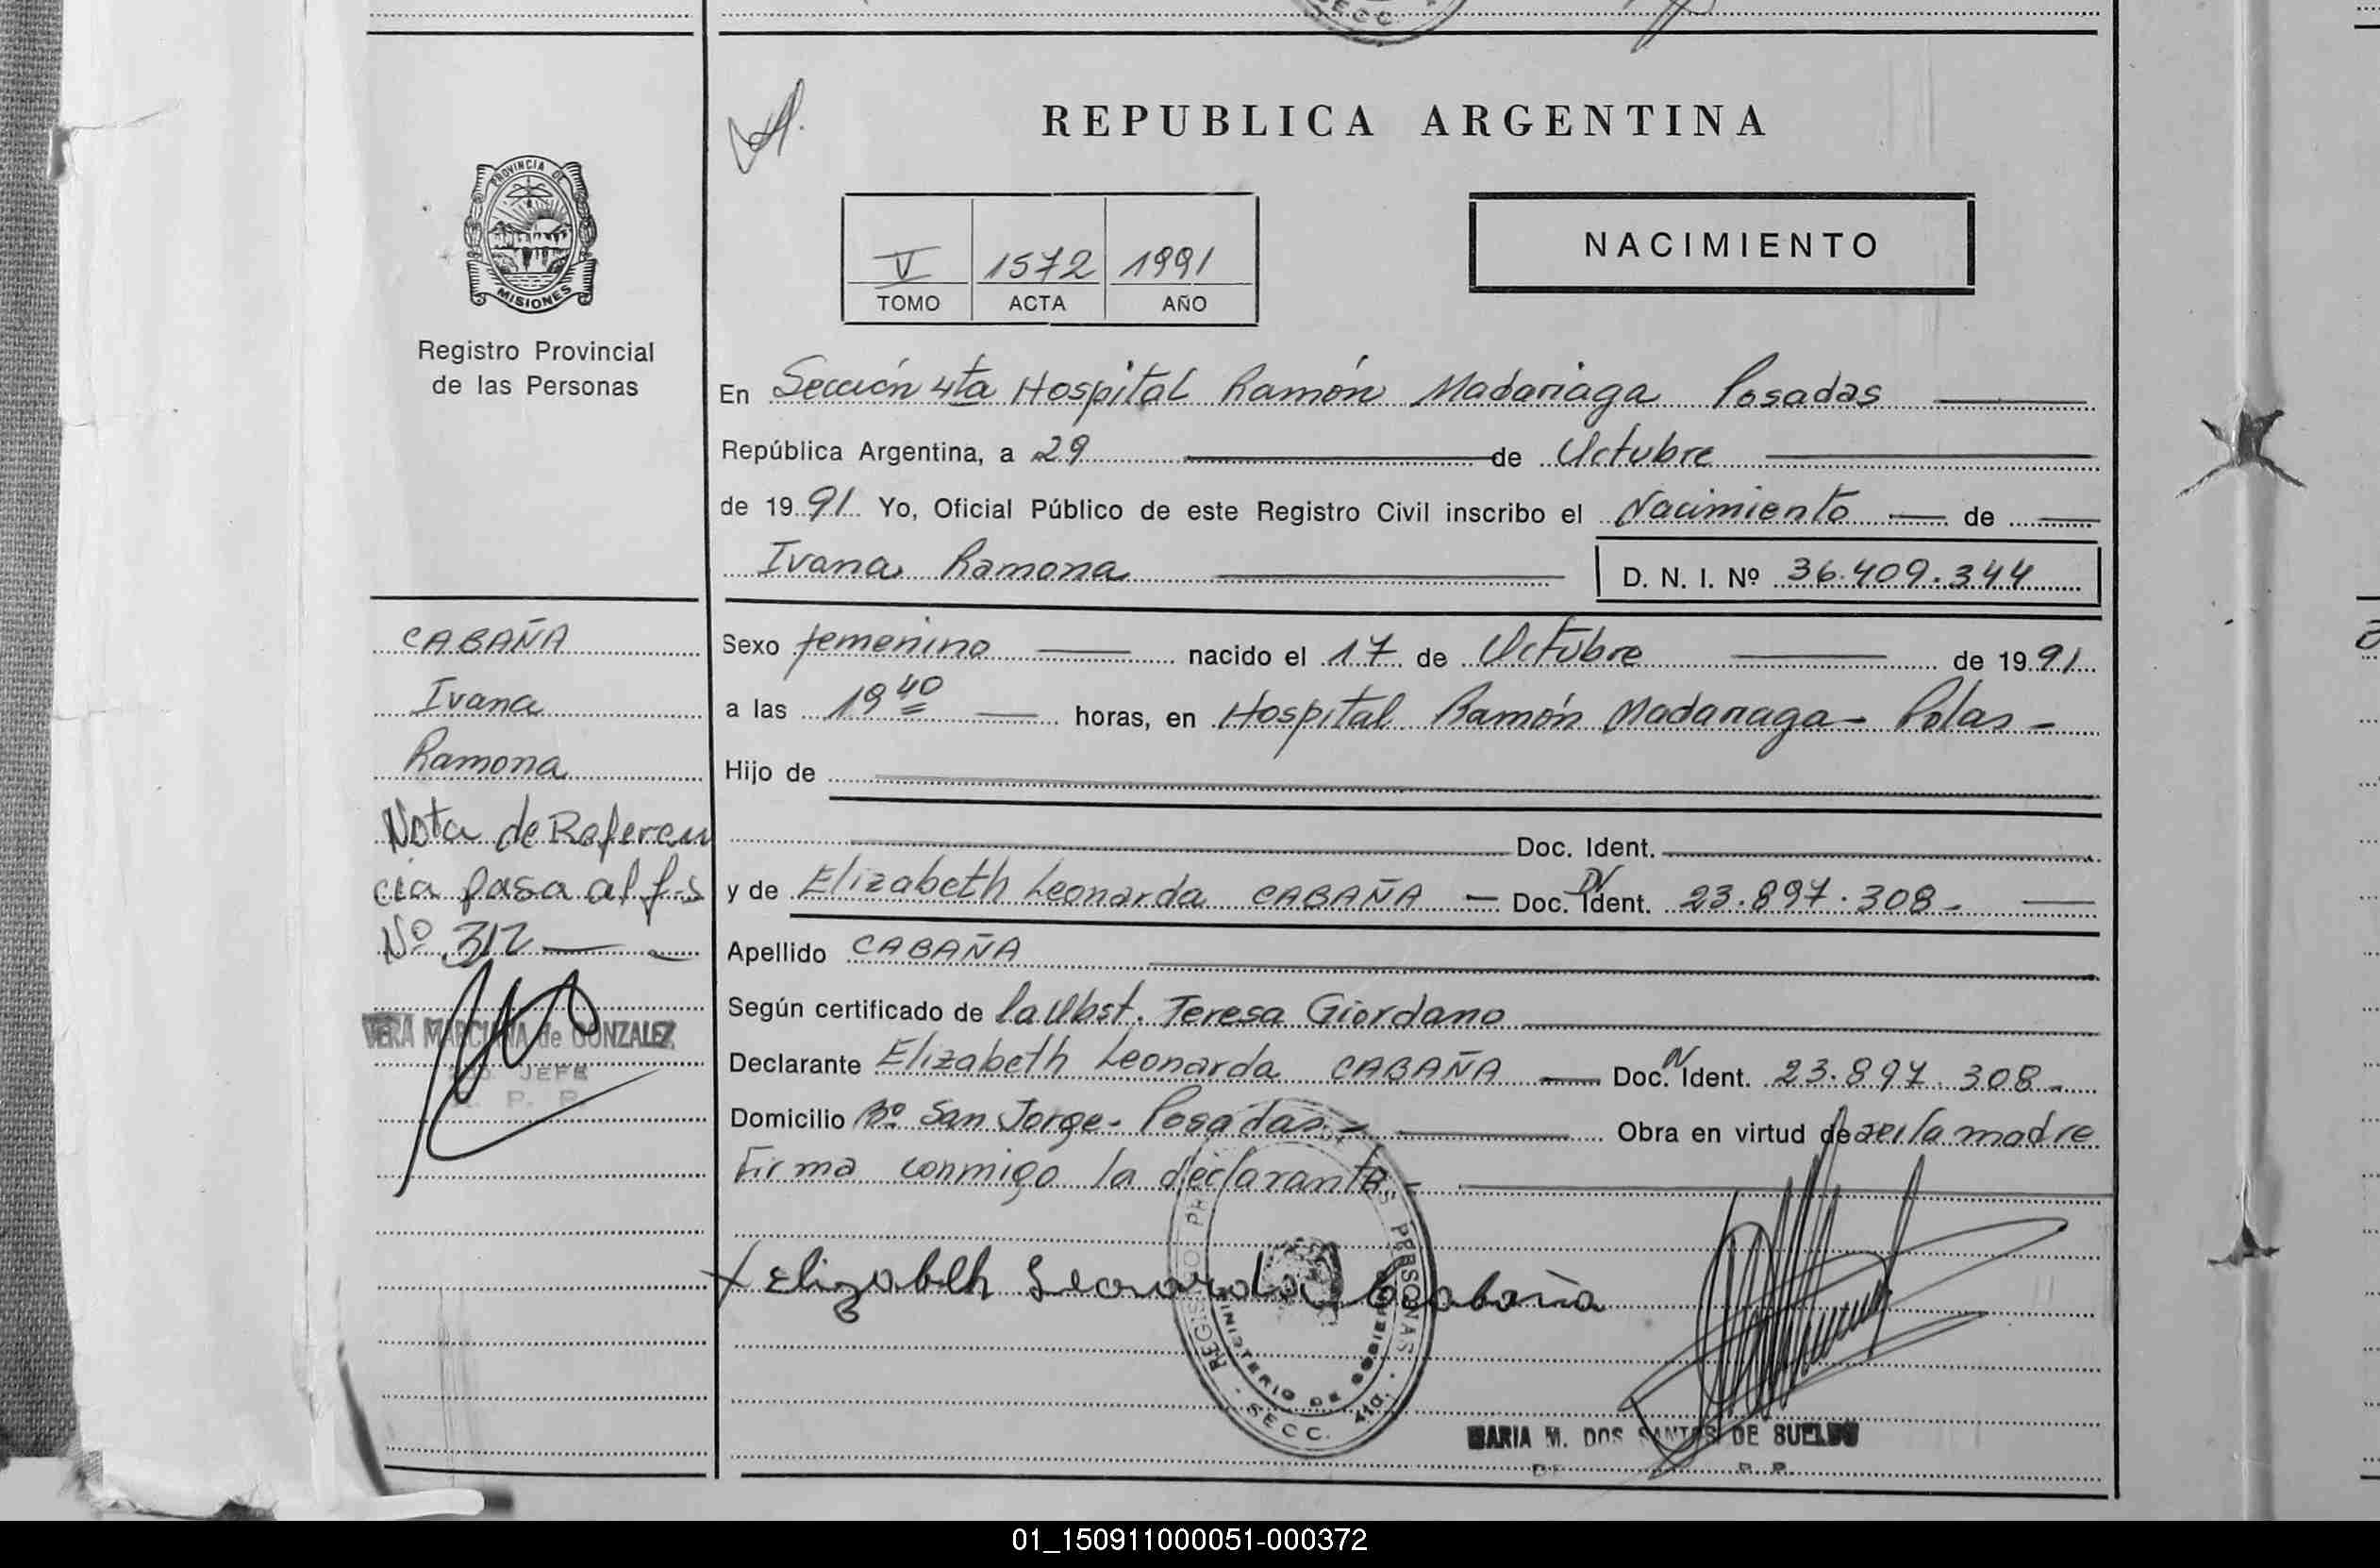 SECC.
REPUBLICA ARGENTINA
PROVINCIA DE
MISIONES
Registro Provincial
de las Personas
V 1572 1991
TOMO ACTA AÑO
NACIMIENTO
En Sección 4ta Hospital Ramón Madariaga Posadas
República Argentina, a 29 de Octubre
de 1991 Yo, Oficial Público de este Registro Civil inscribo el Nacimiento de
Ivana Ramona D. N. I. Nº 36.409.344
CABAÑA
Ivana
Ramona
Nota de Referen
cia pasa al f-s
Nº 312
VERA MARCIANA de GONZALEZ
JEFE
R. P. P.
Sexo femenino nacido el 17 de Octubre de 1991
a las 19 40 horas, en Hospital Ramón Madariaga - Pdas -
Hijo de
Doc. Ident.
y de Elizabeth Leonarda CABAÑA — Doc. Ident. 23.897.308.
Apellido CABAÑA
Según certificado de la Obst. Teresa Giordano
Declarante Elizabeth Leonarda CABAÑA — Doc. Ident. 23.897.308.
Domicilio Bº San Jorge - Posadas - Obra en virtud de ser la madre
Firma conmigo la declarante -
x Elizabeth Leonarda Cabaña
PERSONAS
MINISTERIO DE GOBIERNO
REGISTRO
SECC. 4ta.
MARIA M. DOS SANTOS DE SUELDO
01_150911000051-000372